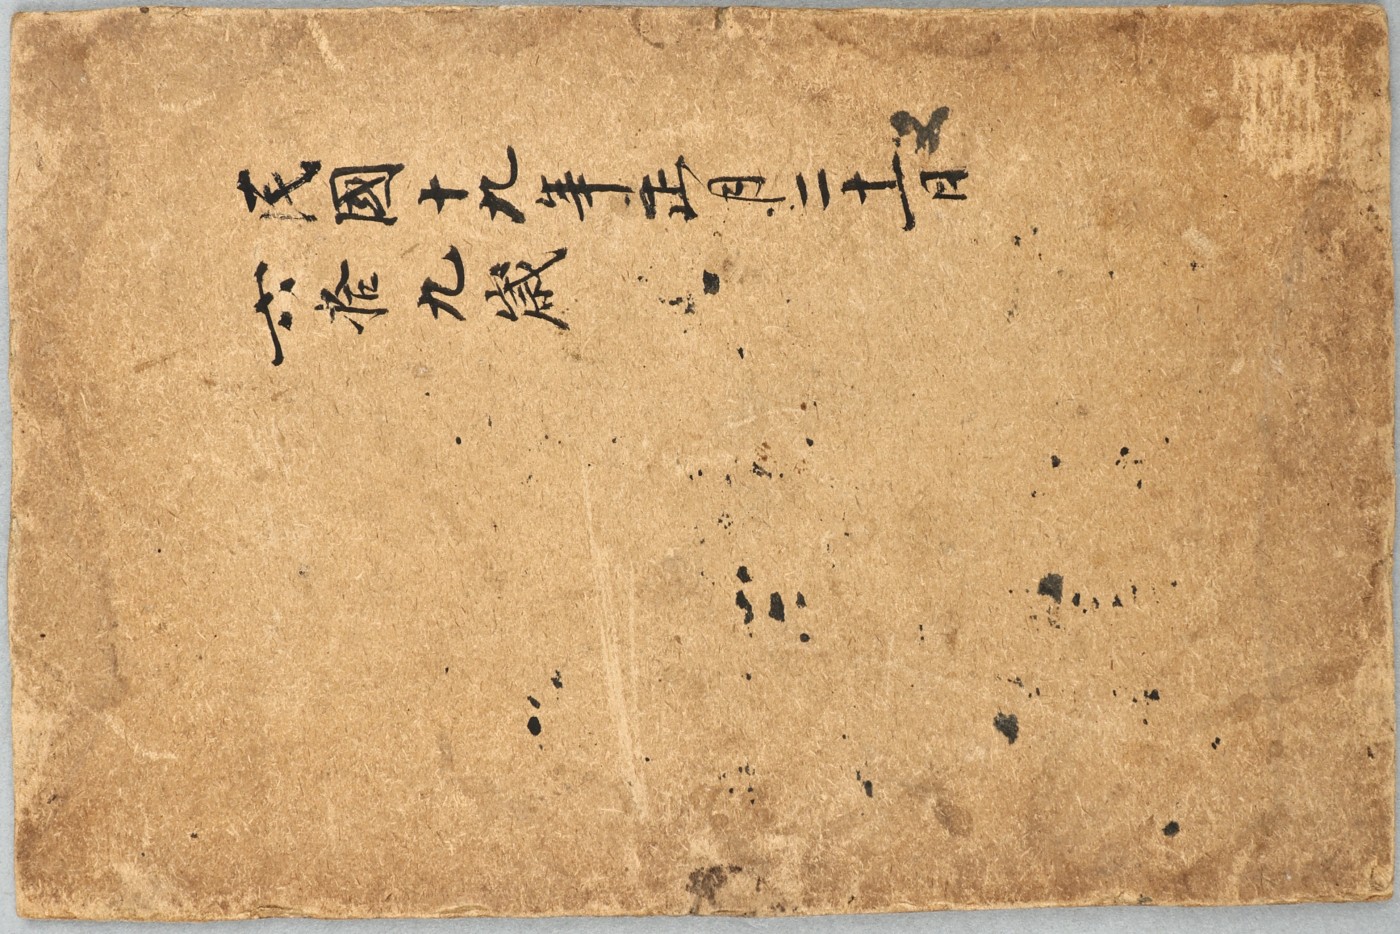 民國十九年正月二十一日
六拾九歲